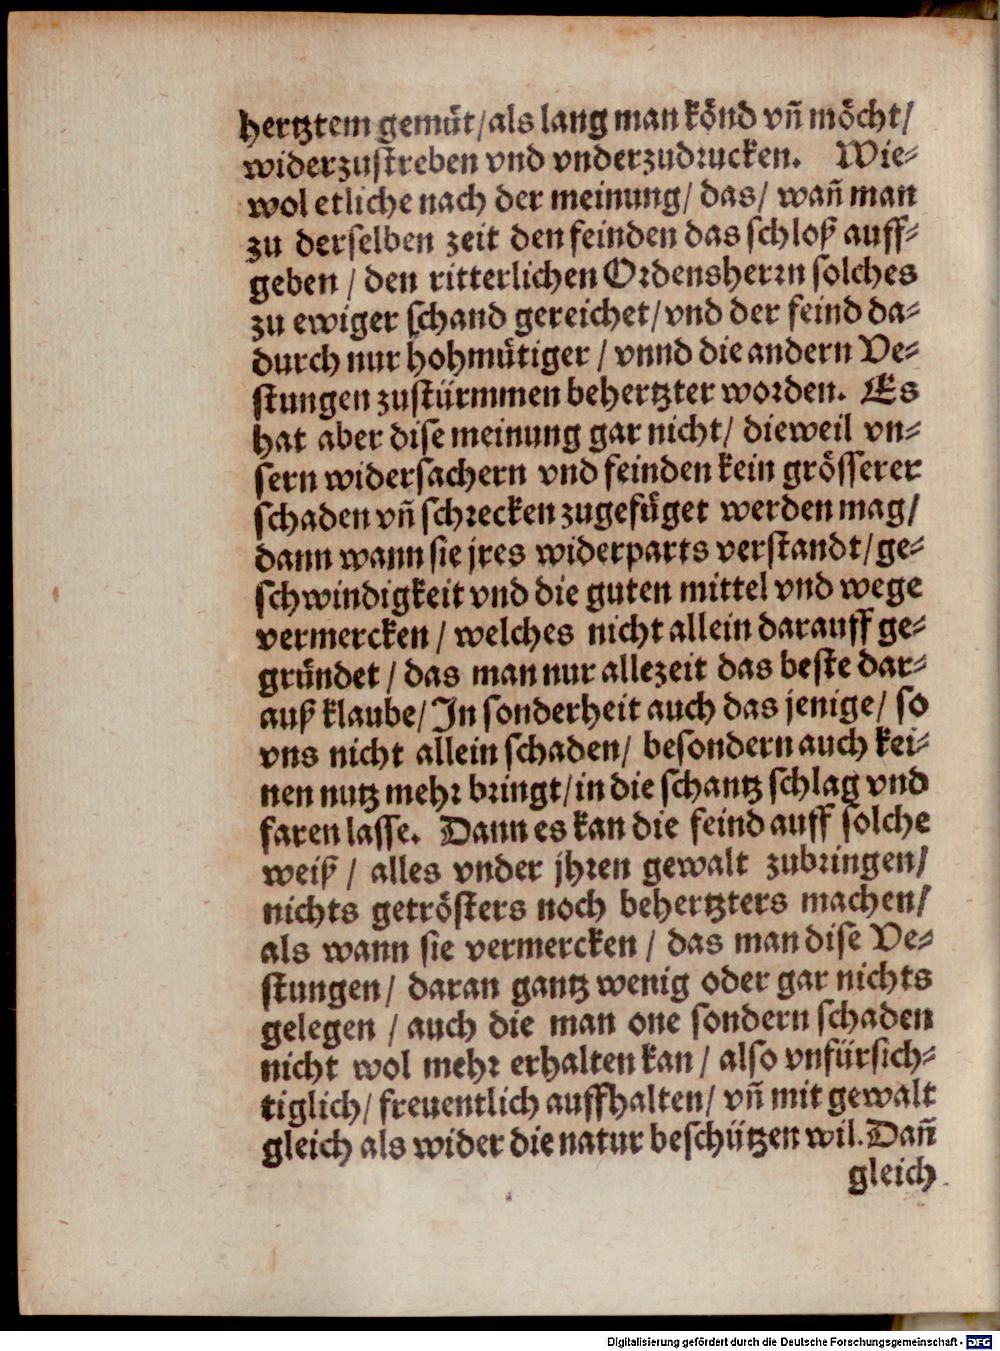 hertztem gemüt/als lang man könd vñ möcht/
widerzustreben vnd vnderzudrucken. Wie-
wol etliche nach der meinung/ das/ wañ man
zu derselben zeit den feinden das schloß auff-
geben / den ritterlichen Ordensherrn solches
zu ewiger schand gereichet/vnd der feind da-
durch nur hohmütiger / vnnd die andern Ve-
stungen zustürmmen behertzter worden. Es
hat aber dise meinung gar nicht/ dieweil vn-
sern widersachern vnd feinden kein grösserer
schaden vñ schrecken zugefüget werden mag/
dann wann sie jres widerparts verstandt/ge-
schwindigkeit vnd die guten mittel vnd wege
vermercken / welches nicht allein darauff ge-
gründet / das man nur allezeit das beste dar-
auß klaube/ In sonderheit auch das jenige/ so
vns nicht allein schaden/ besondern auch kei-
nen nutz mehr bringt/in die schantz schlag vnd
faren lasse. Dann es kan die feind auff solche
weiß / alles vnder jhren gewalt zubringen/
nichts getrösters noch behertzters machen/
als wann sie vermercken / das man dise Ve-
stungen/ daran gantz wenig oder gar nichts
gelegen / auch die man one sondern schaden
nicht wol mehr erhalten kan / also vnfürsich-
tiglich/ freuentlich auffhalten/ vñ mit gewalt
gleich als wider die natur beschützen wil. Dañ
gleich
Digitalisierung gefördert durch die Deutsche Forschungsgemeinschaft - DFG